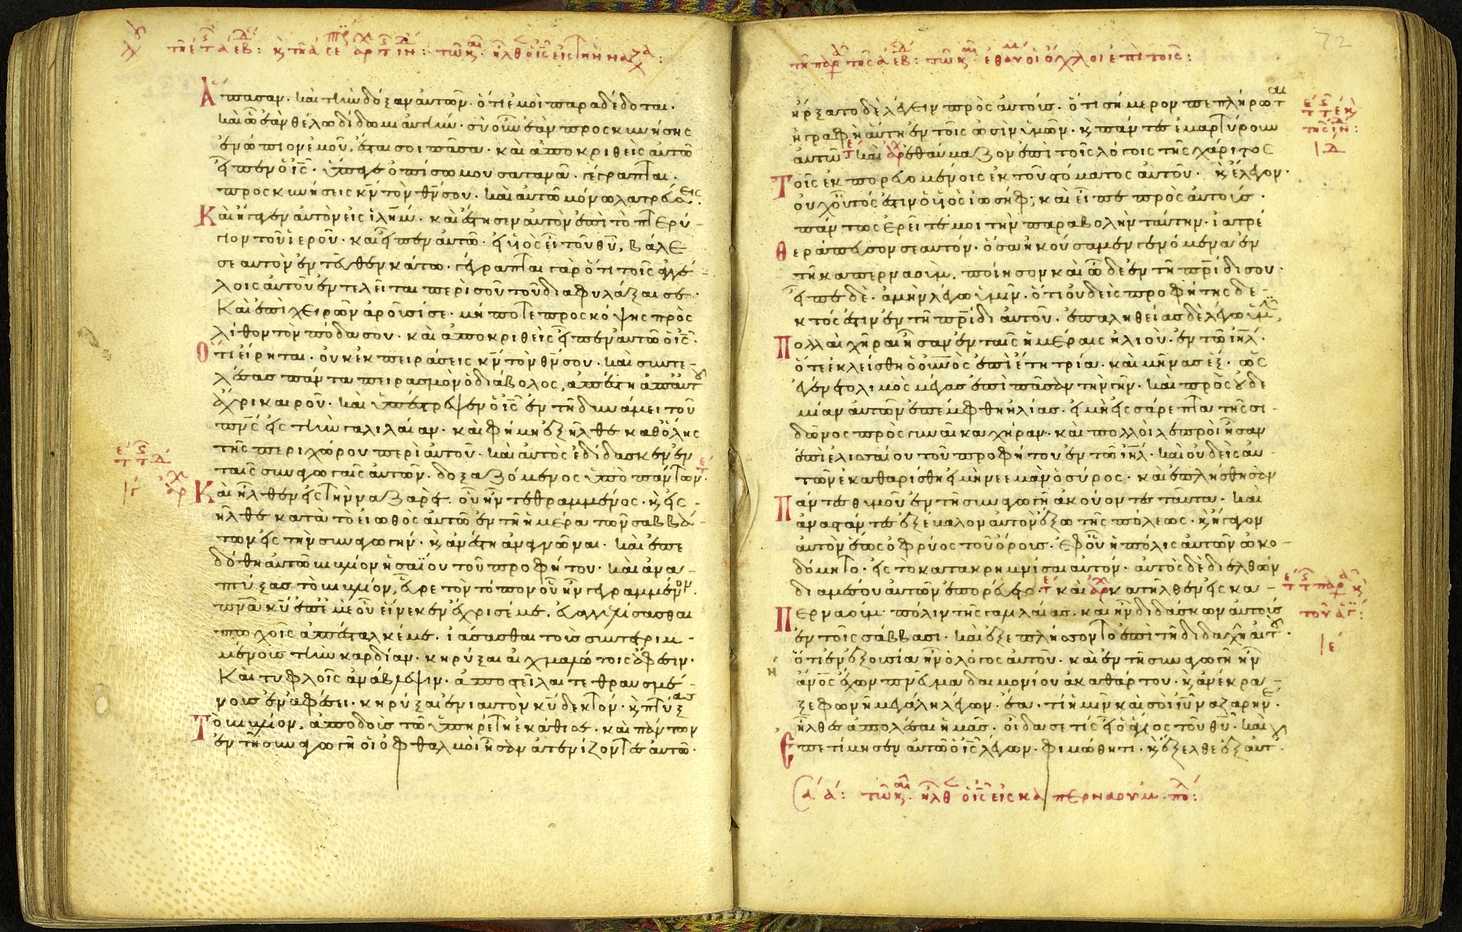 τῶ κ. ἦλθεν ὁ ις εἰς τὴν ναζα:
Ἅπασαν· καὶ τὴν δόξαν αὐτῶν· ὅτι ἐμοὶ παραδέδοται·
καὶ ᾧ ἐὰν θέλω δίδωμι αὐτήν· σὺ οὖν ἐὰν προσκυνήσης
ἐνώπιον ἐμοῦ, ἔσται σοι πᾶσα· καὶ ἀποκριθεὶς αὐτῶ
εἶπεν ὁ ις· ὕπαγε ὀπίσω μου σατανᾶ· γέγραπται·
προσκυνήσεις κν τὸν θν σου· καὶ αὐτῶ μόνω λατρεύσεις·
Καὶ ἤγαγεν αὐτὸν εἰς ιλημ· καὶ ἔστησεν αὐτὸν ἐπὶ τὸ πτερύ-
γιον τοῦ ἱεροῦ· καὶ εἶπεν αὐτῶ· εἰ υἱὸς εἶ τοῦ θυ, βάλε
σεαυτὸν ἐντεῦθεν κάτω· γέγραπται γὰρ ὅτι τοῖς ἀγγέ-
λοις αὐτοῦ ἐντελεῖται περὶ σοῦ τοῦ διαφυλάξαι σε·
Καὶ ἐπὶ χειρῶν ἀροῦσί σε· μήποτε προσκόψης πρὸς
λίθον τὸν πόδα σου· καὶ ἀποκριθεὶς εἶπεν αὐτῶ ὁ ις·
Ὅτι εἴρηται· οὐκ ἐκπειράσεις κν τὸν θν σου· καὶ συντε-
λέσας πάντα πειρασμὸν ὁ διάβολος, ἀπέστη ἀπ αὐτοῦ
ἄχρι καιροῦ· καὶ ὑπέστρεψεν ὁ ις ἐν τῆ δυνάμει τοῦ
πνς εἰς τὴν γαλιλαίαν· καὶ φήμη ἐξῆλθε καθ ὅλης
τῆς περιχώρου περὶ αὐτοῦ· καὶ αὐτὸς ἐδίδασκεν ἐν
ταῖς συναγωγαῖς αὐτῶν· δοξαζόμενος ὑπὸ πάντων·
Καὶ ἦλθεν εἰς τὴν ναζαρέτ· οὗ ἦν τεθραμμένος· κ εἰς-
ῆλθε κατὰ τὸ εἰωθὸς αὐτῶ ἐν τῆ ἡμέρα τῶν σαββά-
των εἰς τὴν συναγωγήν· κ ἀνέστη ἀναγνῶναι· καὶ ἐπε
δόθη αὐτῶ βιβλίον ἡσαΐου τοῦ προφήτου· καὶ ἀνα-
πτύξας τὸ βιβλίον, εὗρε τὸν τόπον οὗ ἦν γεγραμμένον·
πνα κυ ἐπ ἐμὲ οὗ εἵνεκεν ἔχρισέ με· εὐαγγελίσασθαι
πτωχοῖς ἀπέσταλκέ με· ἰάσασθαι τοὺς συντετριμ-
μένους τὴν καρδίαν· κηρύξαι αἰχμαλώτοις ἄφεσιν·
Καὶ τυφλοῖς ἀνάβλεψιν· ἀποστεῖλαι τεθραυσμέ-
νους ἐν ἀφέσει· κηρύξαι ἐνιαυτὸν κυ δεκτόν· κ πτύξας
Τὸ βιβλίον, ἀποδοὺς τῶ ὑπηρέτη ἐκάθισε· καὶ πάντων
ἐν τῆ συναγωγῆ οἱ ὀφθαλμοὶ ἦσαν ἀτενίζοντες αὐτῶ·
72
τῶ κ. ἐθαύμαζον οἱ ὄχλοι ἐπὶ τοῖς:
ἤρξατο δὲ λέγειν πρὸς αὐτούς· ὅτι σήμερον πεπλήρωται
ἡ γραφὴ αὕτη ἐν τοῖς ὠσὶν ὑμῶν· κ πάντες ἐμαρτύρουν
αὐτῶ καὶ ἐθαύμαζον ἐπὶ τοῖς λόγοις τῆς χάριτος
Τοῖς ἐκπορευομένοις ἐκ τοῦ στόματος αὐτοῦ· κ ἔλεγον·
οὐχ οὗτός ἐστιν ὁ υἱὸς ἰωσήφ; καὶ εἶπε πρὸς αὐτούς·
πάντως ἐρεῖτέ μοι τὴν παραβολὴν ταύτην· ἰατρὲ
Θεράπευσον σεαυτόν· ὅσα ἠκούσαμεν γενόμενα ἐν
τῆ καπερναοὺμ, ποίησον καὶ ὧδε ἐν τῆ πρίδι σου·
εἶπε δὲ· ἀμὴν λέγω ὑμῖν· ὅτι οὐδεὶς προφήτης δε-
κτός ἐστιν ἐν τῆ πρίδι αὐτοῦ· ἐπ ἀληθείας δὲ λέγω ὑμῖν,
Πολλαὶ χῆραι ἦσαν ἐν ταῖς ἡμέραις ἡλιοὺ· ἐν τῶ ιηλ·
ὅτε ἐκλείσθη ὁ οὐνος ἐπὶ ἔτη τρία· καὶ μῆνας ἕξ· ὡς
ἐγένετο λιμὸς μέγας ἐπὶ πᾶσαν τὴν γῆν· καὶ πρὸς οὐδε
μίαν αὐτῶν ἐπέμφθη ἠλίας· εἰ μὴ εἰς σάρεπτα τῆς σι-
δῶνος πρὸς γυναῖκα χήραν· καὶ πολλοὶ λεπροὶ ἦσαν
ἐπὶ ἐλισσαίου τοῦ προφήτου ἐν τῶ ιηλ· καὶ οὐδεὶς αὐ-
τῶν ἐκαθαρίσθη εἰ μὴ νεεμὰν ὁ σύρος· καὶ ἐπλήσθησαν
Πάντες θυμοῦ ἐν τῆ συναγωγῆ ἀκούοντες ταῦτα· καὶ
ἀναστάντες ἐξέβαλον αὐτὸν ἔξω τῆς πόλεως· κ ἤγαγον
αὐτὸν ἕως ὀφρύος τοῦ ὄρους· ἐφ οὗ ἡ πόλις αὐτῶν ὠκο-
δόμητο· εἰς τὸ κατακρημνίσαι αὐτόν· αὐτὸς δὲ διελθὼν
διὰ μέσου αὐτῶν ἐπορεύετο καὶ κατῆλθεν εἰς κα-
Περναοὺμ πόλιν τῆς γαλιλαίας· καὶ ἦν διδάσκων αὐτοὺς
ἐν τοῖς σάββασι· καὶ ἐξεπλήσσοντο ἐπὶ τῆ διδαχῆ αὐτοῦ·
ὅτι ἐν ἐξουσία ἦν ὁ λόγος αὐτοῦ· καὶ ἐν τῆ συναγωγῆ ἦν
ανος ἔχων πνευμα δαιμονίου ἀκαθάρτου· κ ἀνέκρα-
ξε φωνῆ μεγάλη λέγων· ἔα· τί ἡμῖν καὶ σοὶ ιυ ναζαρηνέ·
ἦλθες ἀπολέσαι ἡμᾶς· οἶδά σε τίς εἶ ὁ ἅγιος τοῦ θυ· καὶ
Ἐπετίμησεν αὐτῶ ὁ ις λέγων· φιμώθητι· κ ἔξελθε ἐξ αὐτοῦ·
τῶ κ. ἦλθεν ὁ ις εἰς καπερναοὺμ πόλ: